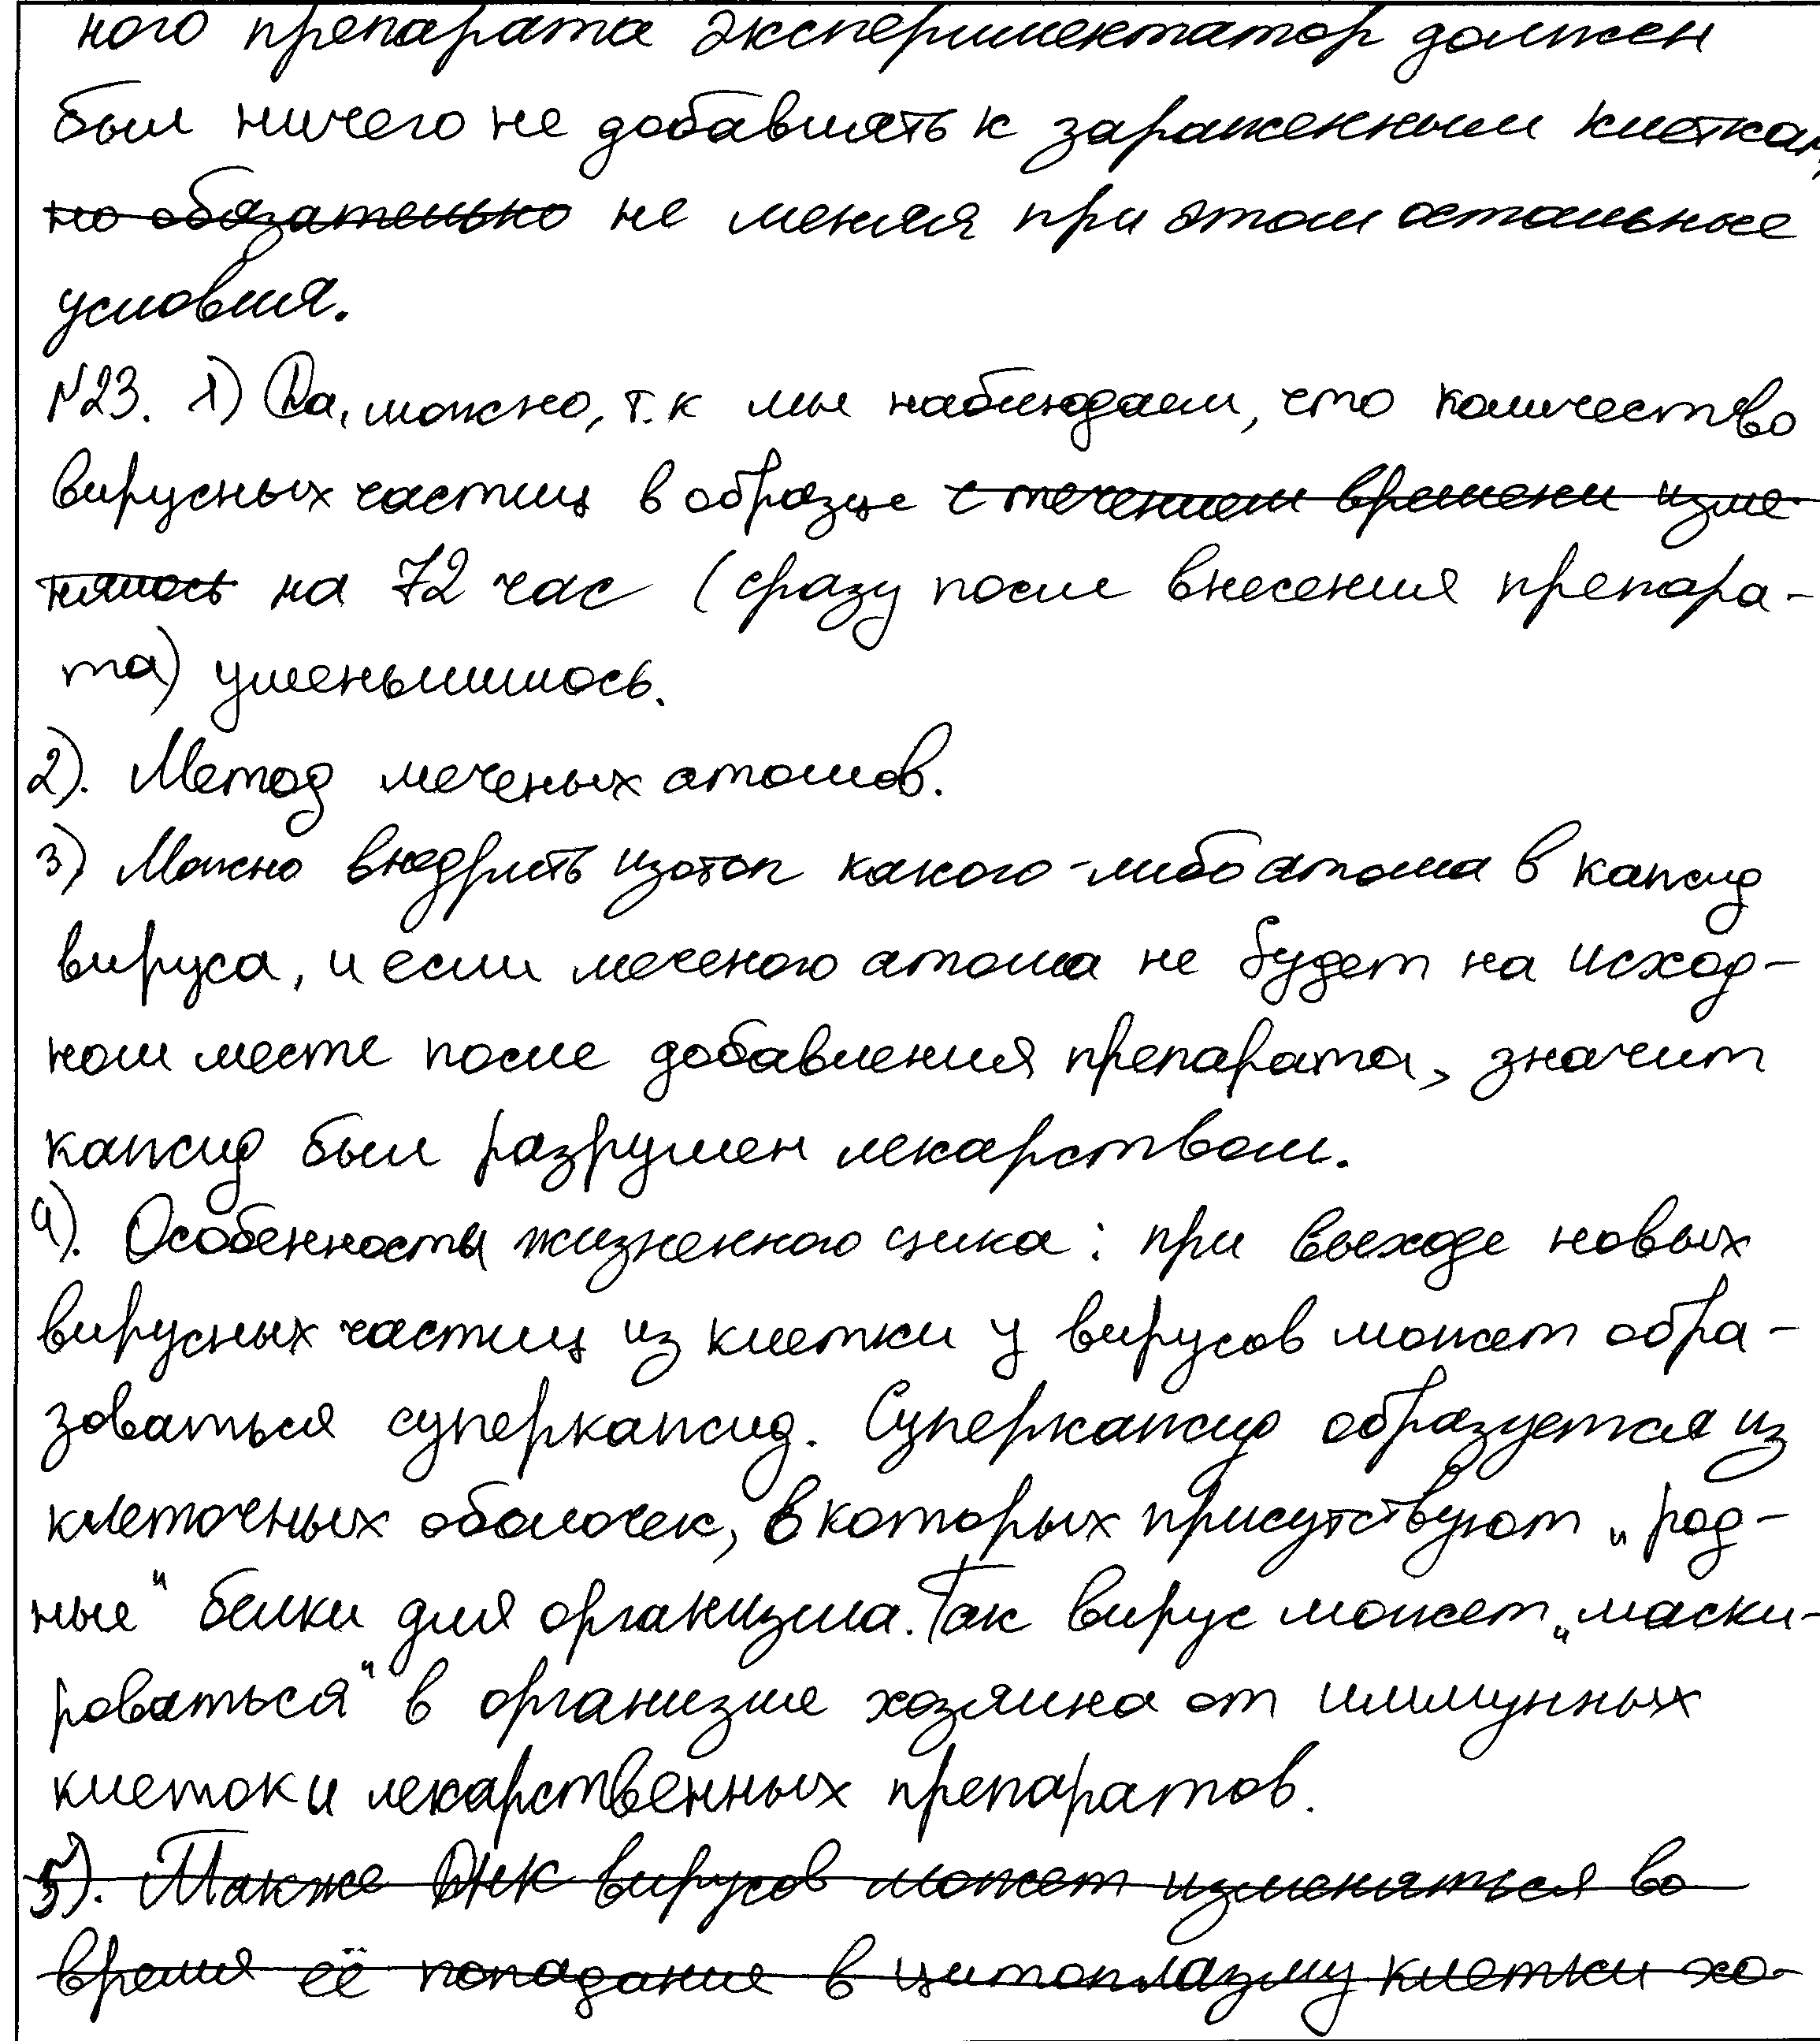 ного препарата экспериментатор должен
был ничего не добавлять к зараженным клеткам,
но обязательно не меняя при этом остальные
условия.
№23. 1) Да, можно, т.к мы наблюдаем, что количество
вирусных частиц в образце с течением времени изме-
нялось на 72 час (сразу после внесения препара-
та) уменьшилось.
2). Метод меченых атомов.
3) Можно внедрить изотоп какого-либо атома в капсид
вируса, и если меченого атома не будет на исход-
ном месте после добавления препарата, значит
капсид был разрушен лекарством.
4). Особенность жизненного цика: при выходе новых
вирусных частиц из клетки у вирусов может обра-
зоваться суперкапсид. Суперкапсид образуется из
клеточных оболочек, в которых присутствуют „род-
ные" белки для организма. Так вирус может „маски-
роваться" в организме хозяина от иммунных
клеток и лекарственных препаратов.
5). Также ДНК вирусов может изменяться во
время её попадания в цитоплазму клетки хо-